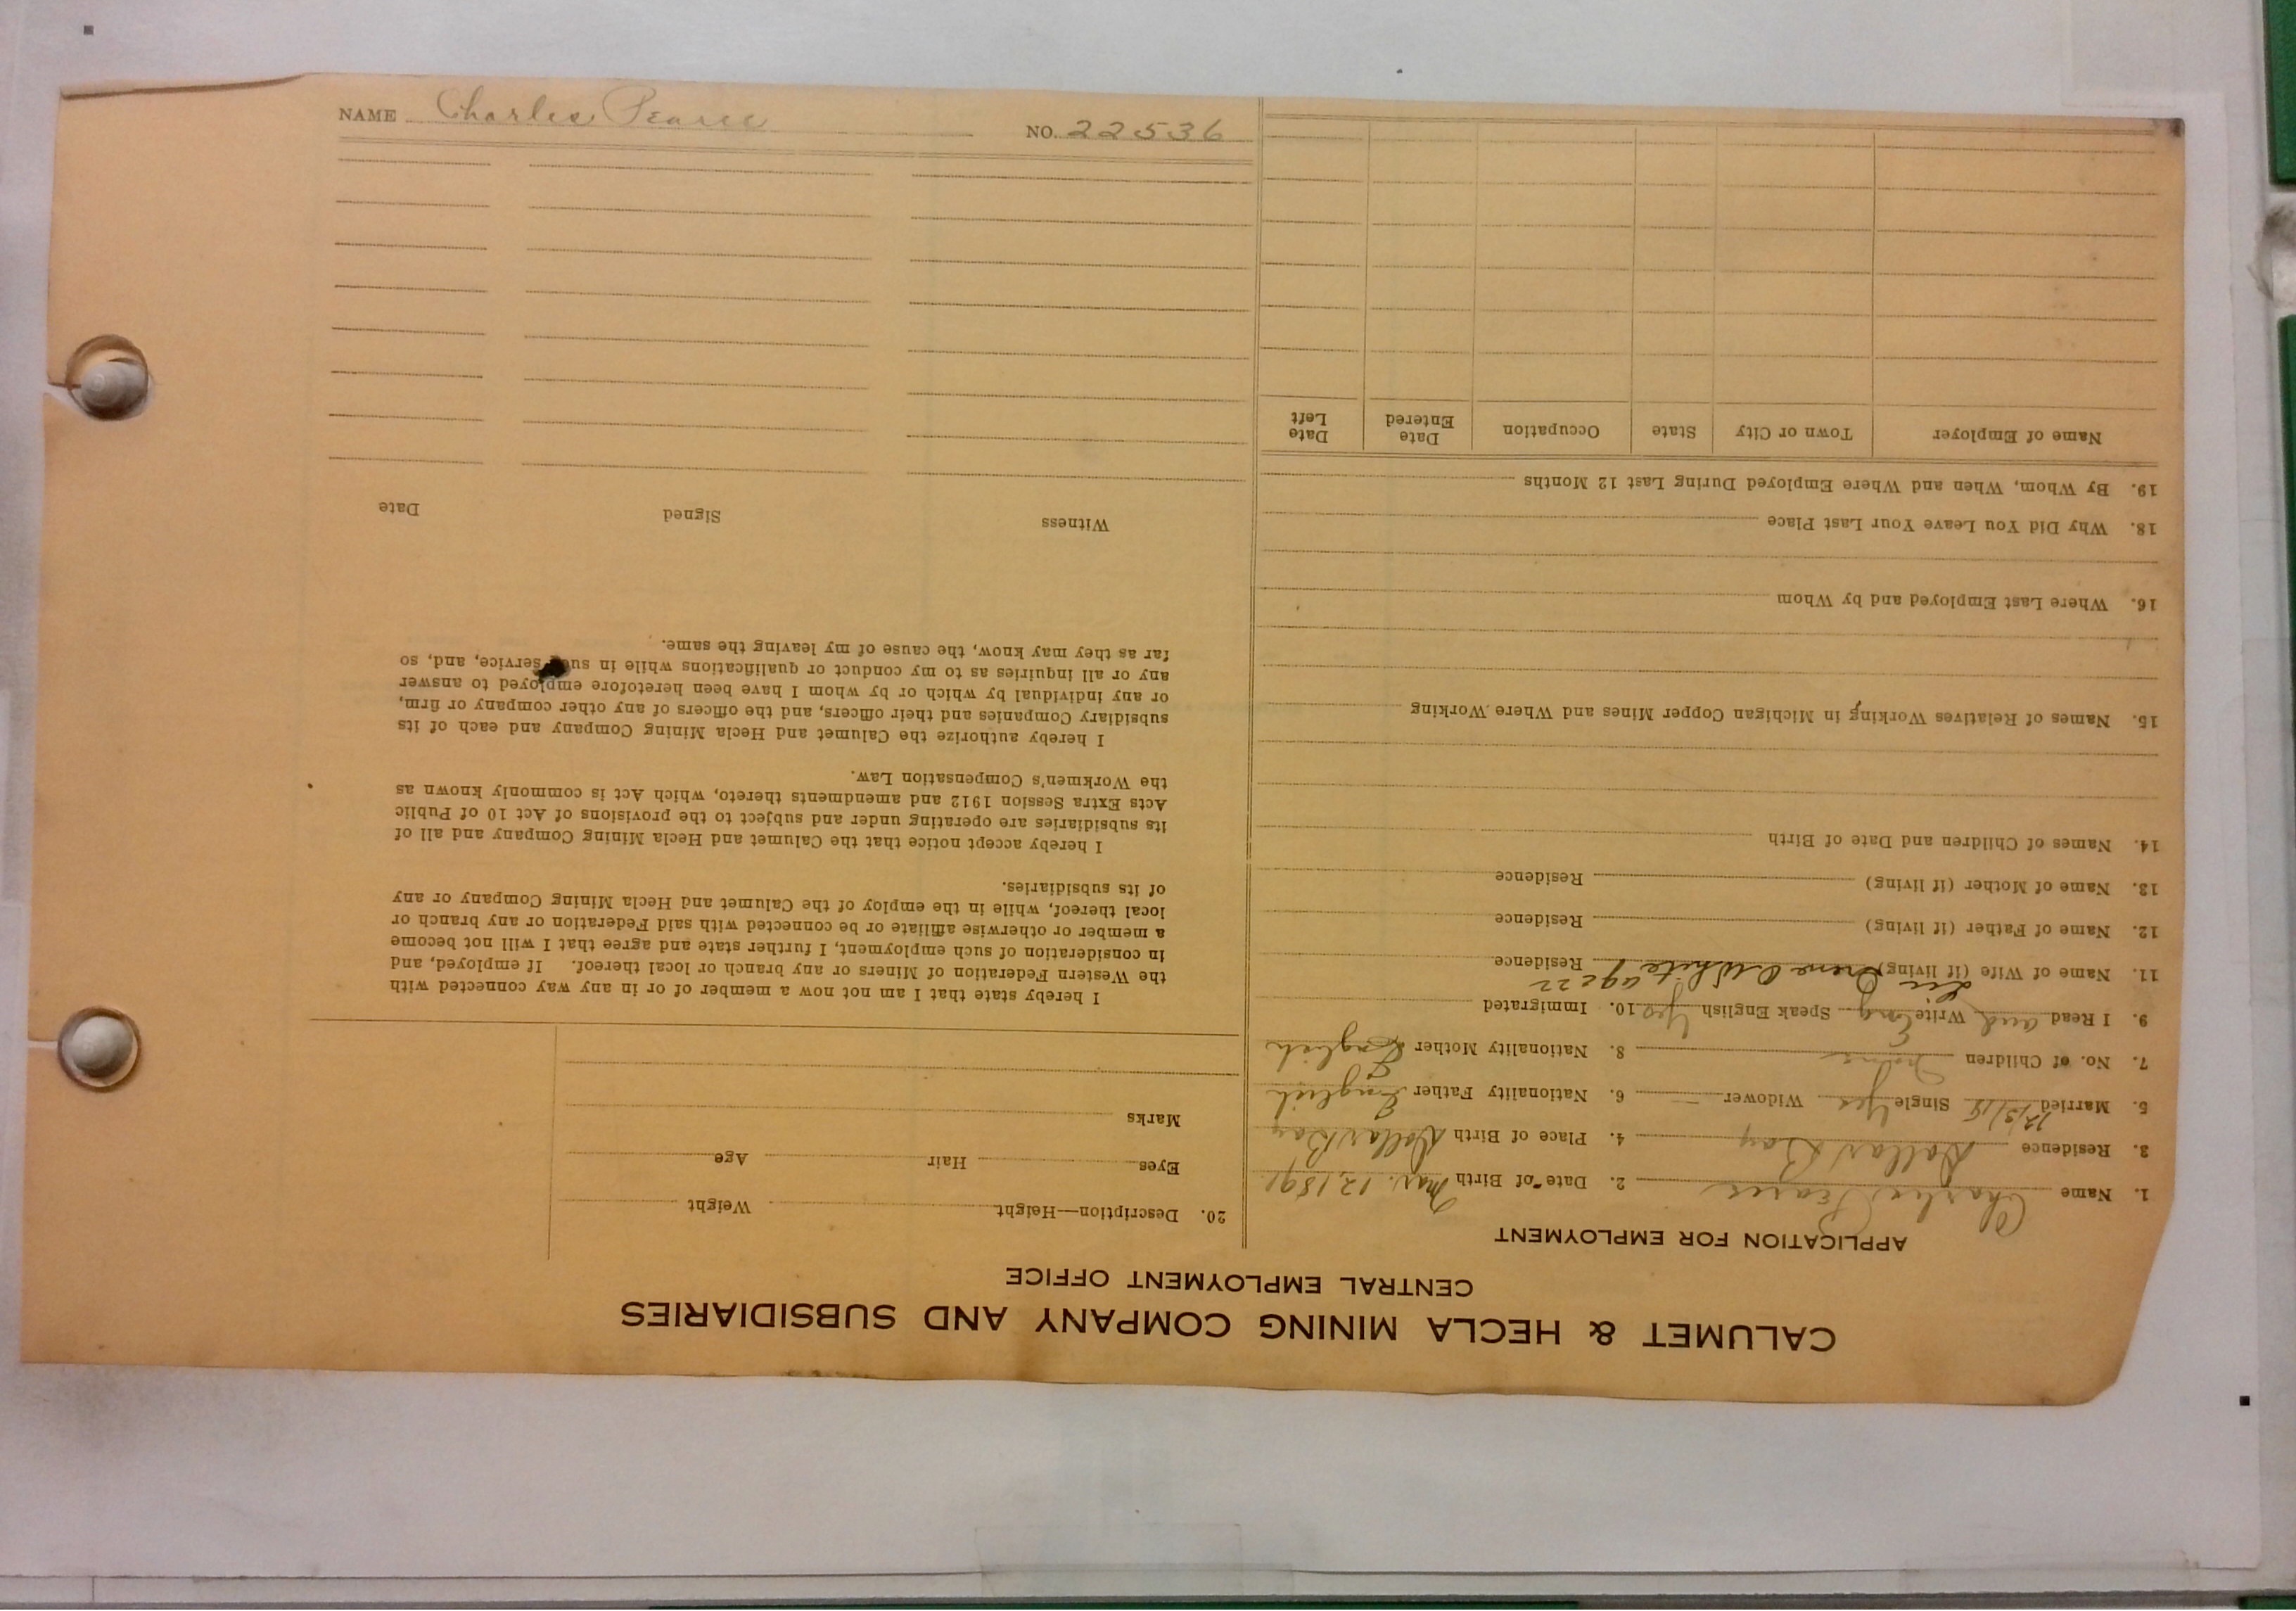 CALUMET & HECLA MINING COMPANY AND SUBSIDIARIES
CENTRAL EMPLOYMENT OFFICE
APPLICATION FOR EMPLOYMENT
1. Name Charles Pearce 2. Date of Birth Mar. 12, 1891
3. Residence Dollar Bay 4. Place of Birth Dollar Bay
5. Married 12/3/18 Single Yes Widower — 6. Nationality Father English
7. No. of Children None 8. Nationality Mother English
9. I Read and Write Eng Speak English Yes 10. Immigrated
11. Name of Wife (if living) Irene O. White age 22 Residence
12. Name of Father (if living) Residence
13. Name of Mother (if living) Residence
14. Names of Children and Date of Birth
15. Names of Relatives Working in Michigan Copper Mines and Where Working
16. Where Last Employed and by Whom
18. Why Did You Leave Your Last Place
19. By Whom, When and Where Employed During Last 12 Months
Name of Employer Town or City State Occupation Date Entered Date Left
20. Description—Height Weight
Eyes Hair Age
Marks
I hereby state that I am not now a member of or in any way connected with
the Western Federation of Miners or any branch or local thereof. If employed, and
in consideration of such employment, I further state and agree that I will not become
a member or otherwise affiliate or be connected with said Federation or any branch or
local thereof, while in the employ of the Calumet and Hecla Mining Company or any
of its subsidiaries.
I hereby accept notice that the Calumet and Hecla Mining Company and all of
its subsidiaries are operating under and subject to the provisions of Act 10 of Public
Acts Extra Session 1912 and amendments thereto, which Act is commonly known as
the Workmen's Compensation Law.
I hereby authorize the Calumet and Hecla Mining Company and each of its
subsidiary Companies and their officers, and the officers of any other company or firm,
or any individual by which or by whom I have been heretofore employed to answer
any or all inquiries as to my conduct or qualifications while in such service, and, so
far as they may know, the cause of my leaving the same.
Witness Signed Date
NAME Charles Pearce NO. 22536